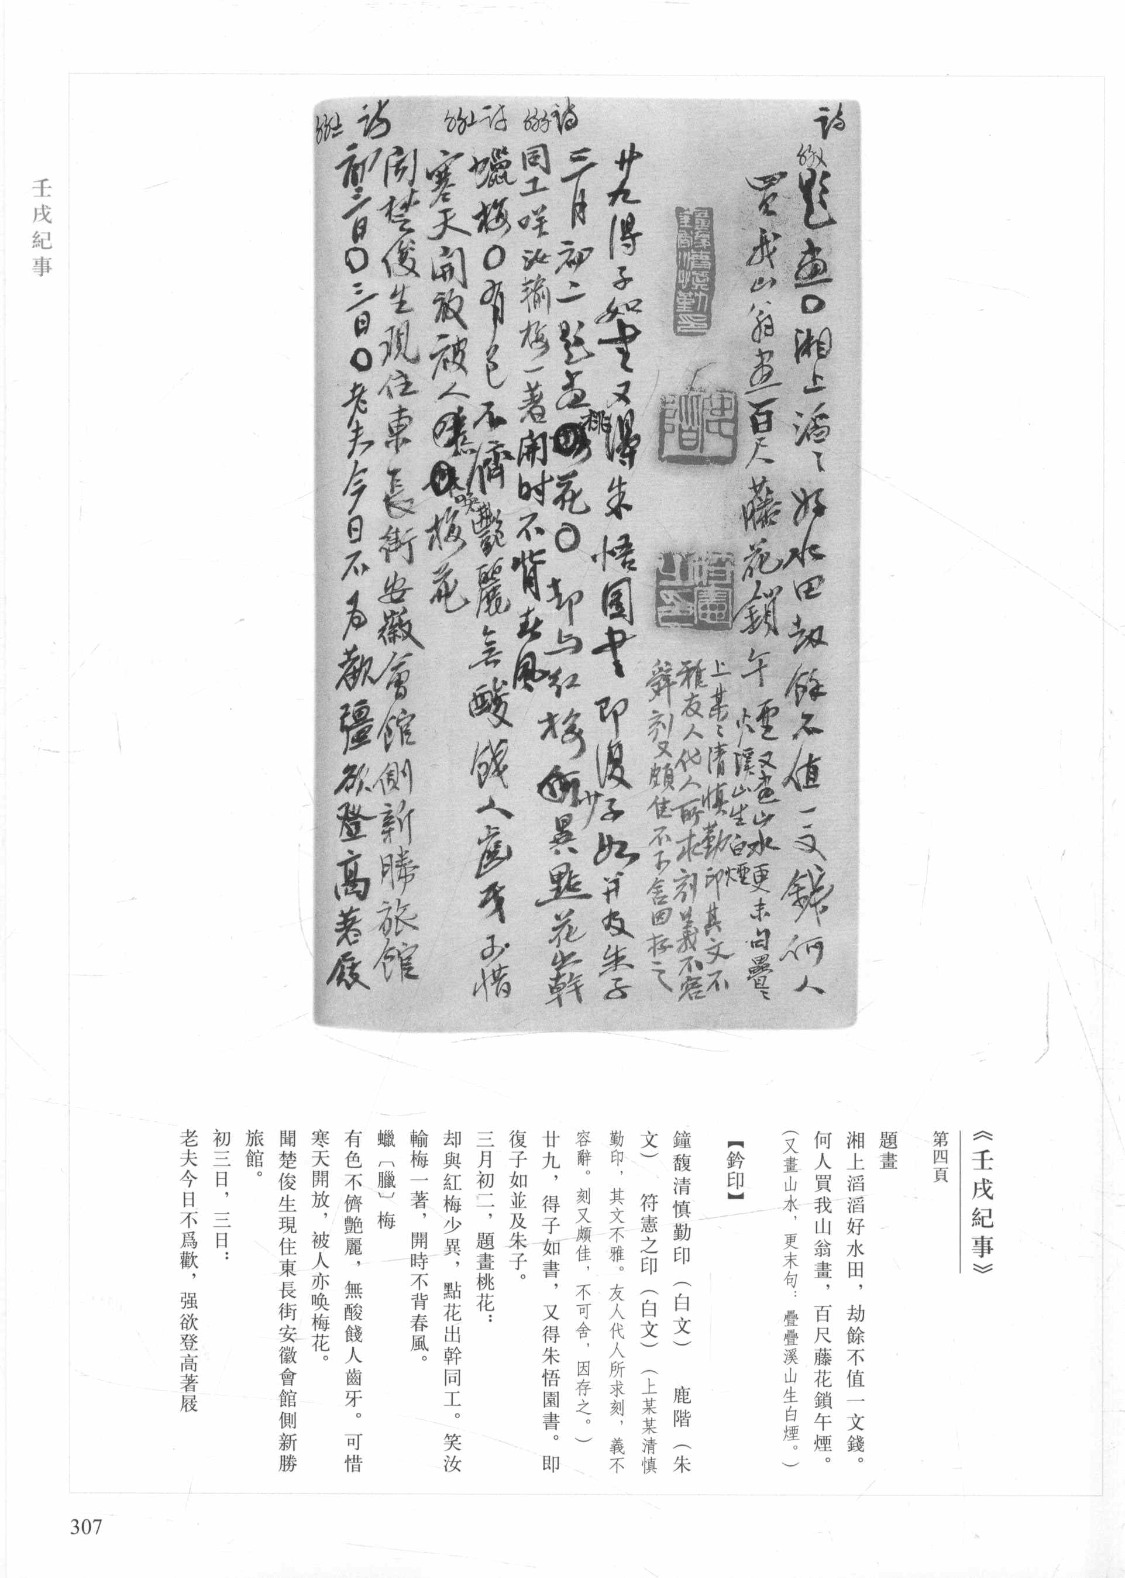 壬戌紀事
詩
緞題畫〇湘上滔〻好水田劫餘不值一文錢何人
買我山翁畫百尺藤花鎖午煙又畫山水更末句疊〻
溪山生白煙
上某〻清慎勤印其文不
雅友人代人所求刻義不容
辭刻又頗佳不可舍因存之
廿九得子如書又得朱悟園書即復子如並及朱子
詩
三月初二題畫桃花〇却與紅梅少異點花出幹
同工笑汝輸梅一著開時不背春風
詩
蠟梅〇有色不儕艷麗無酸餞人齒牙可惜
寒天開放被人亦喚梅花
聞楚俊生現住東長街安徽會館側新勝旅館
詩
初三日〇三日〇老夫今日不為歡彊欲登高著屐
《壬戌紀事》
第四頁
題畫
湘上滔滔好水田，劫餘不值一文錢。
何人買我山翁畫，百尺藤花鎖午煙。
（又畫山水，更末句：疊疊溪山生白煙。）
【鈐印】
鐘馥清慎勤印（白文）　鹿階（朱
文）　符憲之印（白文）（上某某清慎
勤印，其文不雅。友人代人所求刻，義不
容辭。刻又頗佳，不可舍，因存之。）
廿九，得子如書，又得朱悟園書。即
復子如並及朱子。
三月初二，題畫桃花：
却與紅梅少異，點花出幹同工。笑汝
輸梅一著，開時不背春風。
蠟〔臘〕梅
有色不儕艷麗，無酸餞人齒牙。可惜
寒天開放，被人亦喚梅花。
聞楚俊生現住東長街安徽會館側新勝
旅館。
初三日，三日：
老夫今日不爲歡，强欲登高著屐
307